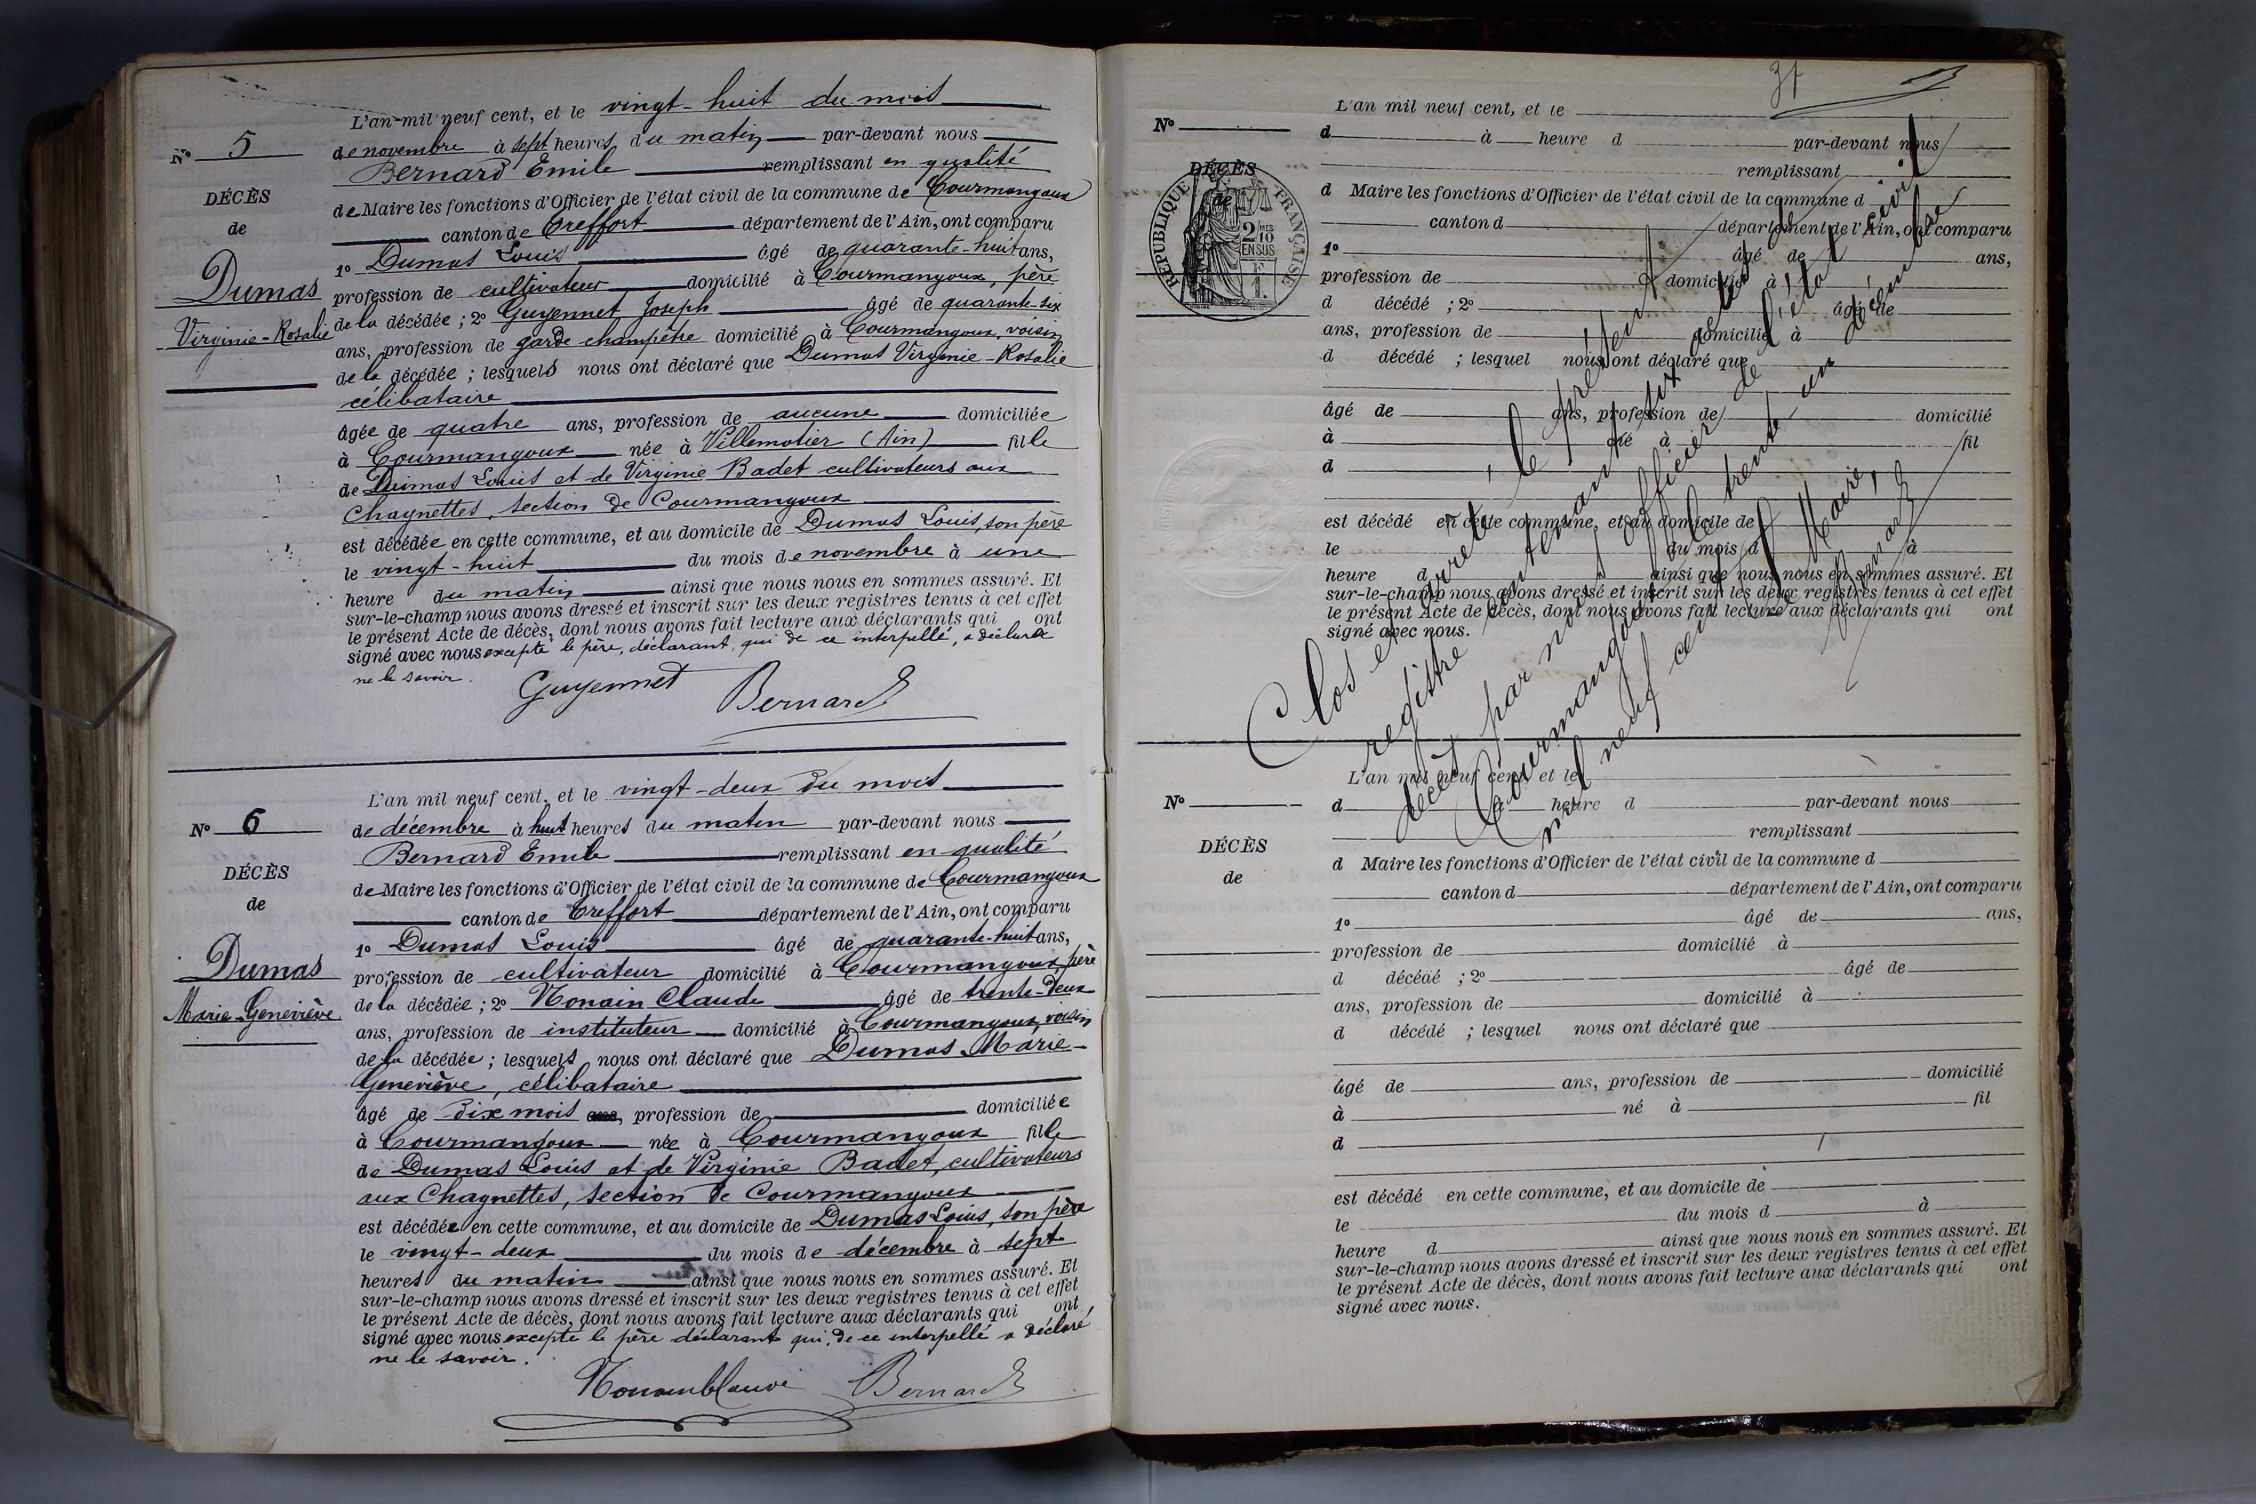 L'an mil neuf cent, et le vingt-huit du mois
N° 5
de novembre à sept heures du matin par-devant nous
Bernard Emile remplissant en qualité
DÉCÈS
de Maire les fonctions d'Officier de l'état civil de la commune de Courmangoux
de
canton de Treffort département de l'Ain, ont comparu
1° Dumas Louis âgé de quarante-huit ans,
Dumas
profession de cultivateur domicilié à Courmangoux, père
Virginie-Rosalie
de la décédée ; 2° Guyennet Joseph âgé de quarante-six
ans, profession de garde champêtre domicilié à Courmangoux, voisin
de la décédée ; lesquels nous ont déclaré que Dumas Virginie-Rosalie
célibataire
âgée de quatre ans, profession de aucune domiciliée
à Courmangoux née à Villemotier (Ain) fille
de Dumas Louis et de Virginie Badet cultivateurs aux
Chagnettes, section de Courmangoux
est décédée en cette commune, et au domicile de Dumas Louis, son père
le vingt-huit du mois de novembre à une
heure du matin ainsi que nous nous en sommes assuré. Et
sur-le-champ nous avons dressé et inscrit sur les deux registres tenus à cet effet
le présent Acte de décès, dont nous avons fait lecture aux déclarants qui ont
signé avec nous excepté le père, déclarant, qui de ce interpellé, a déclaré
ne le savoir.
Guyennet Bernard
L'an mil neuf cent, et le vingt-deux du mois
N° 6
de décembre à huit heures du matin par-devant nous
Bernard Emile remplissant en qualité
DÉCÈS
de Maire les fonctions d'Officier de l'état civil de la commune de Courmangoux
de
canton de Treffort département de l'Ain, ont comparu
1° Dumas Louis âgé de quarante-huit ans,
Dumas
profession de cultivateur domicilié à Courmangoux, père
Marie-Geneviève
de la décédée ; 2° Nonain Claude âgé de trente-deux
ans, profession de instituteur domicilié à Courmangoux, voisin
de la décédée ; lesquels nous ont déclaré que Dumas Marie-
Geneviève, célibataire
âgé de dix mois ans, profession de domiciliée
à Courmangoux née à Courmangoux fille
de Dumas Louis et de Virginie Badet, cultivateurs
aux Chagnettes, section de Courmangoux
est décédée en cette commune, et au domicile de Dumas Louis, son père
le vingt-deux du mois de décembre à sept
heures du matin ainsi que nous nous en sommes assuré. Et
sur-le-champ nous avons dressé et inscrit sur les deux registres tenus à cet effet
le présent Acte de décès, dont nous avons fait lecture aux déclarants qui ont
signé avec nous excepté le père déclarant qui, de ce interpellé a déclaré
ne le savoir.
Bernard
L'an mil neuf cent, et le
N°
d à heure d par-devant nous
remplissant
DÉCÈS
de
RÉPUBLIQUE FRANÇAISE
2/10 EN SUS
d Maire les fonctions d'Officier de l'état civil de la commune d
canton d département de l'Ain, ont comparu
1° âgé de ans,
profession de domicilié à
d décédé ; 2° âgé de
ans, profession de domicilié à
d décédé ; lesquel nous ont déclaré que
âgé de ans, profession de domicilié
à né à fil
d
est décédé en cette commune, et au domicile de
le du mois d à
heure d ainsi que nous nous en sommes assuré. Et
sur-le-champ nous avons dressé et inscrit sur les deux registres tenus à cet effet
le présent Acte de décès, dont nous avons fait lecture aux déclarants qui ont
signé avec nous.
Clos et arrêté, le présent
registre contenant six actes de
décès par nous officier de l'état civil
Courmangoux le trente-un décembre
mil neuf cent
Le Maire,
Bernard
L'an mil neuf cent, et le
N°
d à heure d par-devant nous
remplissant
DÉCÈS
d Maire les fonctions d'Officier de l'état civil de la commune d
de
canton d département de l'Ain, ont comparu
1° âgé de ans,
profession de domicilié à
d décédé ; 2° âgé de
ans, profession de domicilié à
d décédé ; lesquel nous ont déclaré que
âgé de ans, profession de domicilié
à né à fil
d
est décédé en cette commune, et au domicile de
le du mois d à
heure d ainsi que nous nous en sommes assuré. Et
sur-le-champ nous avons dressé et inscrit sur les deux registres tenus à cet effet
le présent Acte de décès, dont nous avons fait lecture aux déclarants qui ont
signé avec nous.